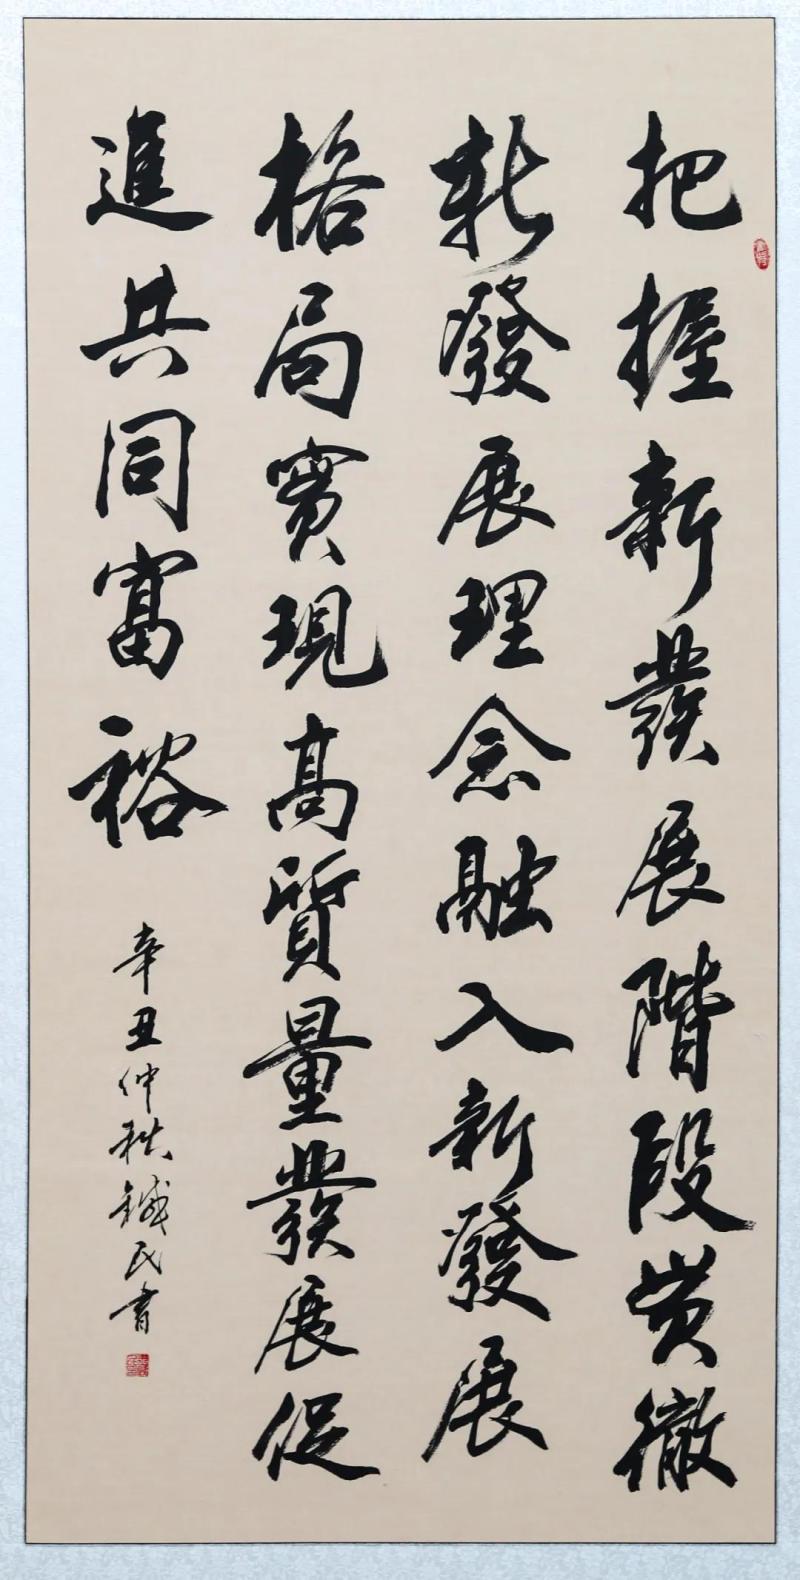 把握新發展階段贯徹
新發展理念融入新發展
格局實現高質量發展促
進共同富裕
辛丑仲秋鐵民書